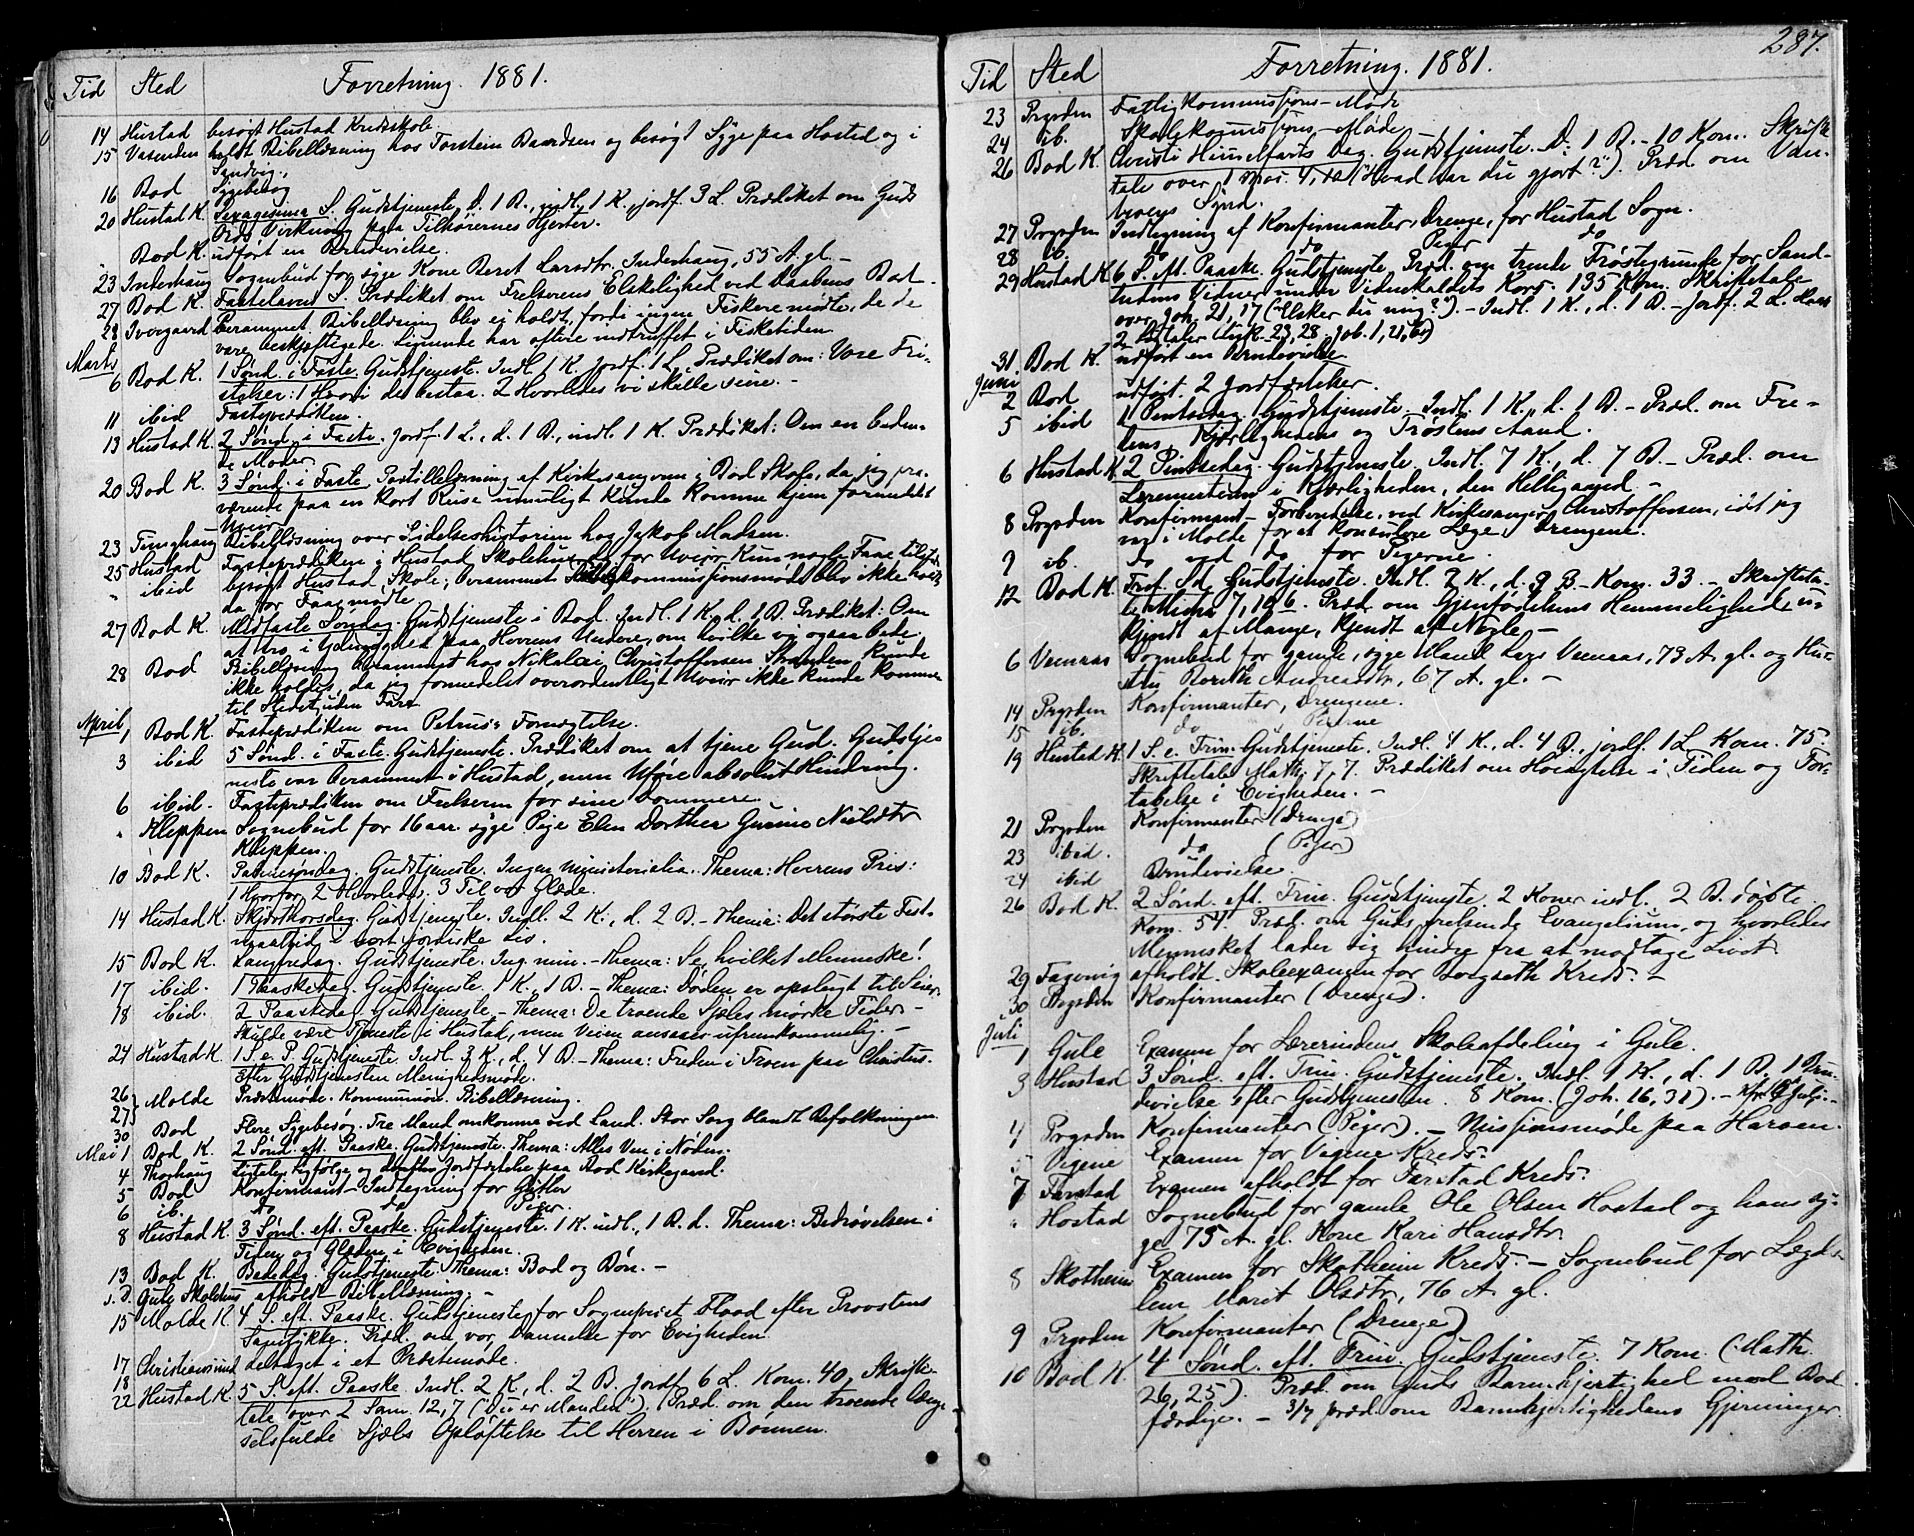 Tid Sted Forretning. 1881.
14 Hustad besøgt Hustad Kredsskole
15 Vasenden holdt Bibellæsning hos Torstein Baardsen og besøgt Syge paa Hostad og i
Sandvig.
16 Bod Sygebesøg
20 Hustad K. Sexagesima S. Gudstjeneste. D. 1 B., indl. 1 K., jordf. 3 L. Prædiket om Guds
Ords Virkning paa Tilhørernes Hjerter.
" Bod K. udført en Brudevielse.
23 Inderhaug Sognebud for syge Kone Beret Larsdtr. Inderhaug, 55 A. gl. –
27 Bod K. Fastelavns S. Prædiket om Frelserens Elskelighed ved Daabens Bad.
28 Iversgaard Berammet Bibellæsning blev ej holdt, fordi ingen Fiskere mødte, da de
vare beskjæftigede. Lignende har oftere indtruffet i Fisketiden.
Marts
6 Bod K. 1 Sønd. i Faste. Gudstjeneste. Indl. 1 K. Jordf. 1 L. Prædiket om: Vore Fri-
stelser: 1 Hvori de bestaa. 2 Hvorledes vi skulle seire. –
11 ibid Fasteprædiken.
13 Hustad K. 2 Sønd. i Faste. Jordf. 1 L., d. 1 B., indl. 1 K. Prædiket: Om en beden-
de Moder
20 Bod K. 3 Sønd. i Faste. Postillelæsning af Kirkesangeren i Bod Skole, da jeg fra-
værende paa en kort Reise umuligt kunde komme hjem formedelst
Uveir
23 Tunghaug Bibellæsning over Lidelseshistorien hos Jakob Madsen.
25 Hustad Fasteprædiken i Hustad Skolehus, for Uveir kun nogle Faae tilstede
" ibid besøgt Hustad Skole; berammet kommissionsmøde blev ikke holdt,
da for Faa mødte
27 Bod K. Midfaste Søndag. Gudstjeneste i Bod. Indl. 1 K. d. 1 B. Prædiket: Om
at tro i Ydmyghed paa Herrens Undere, om hvilke vi ogsaa bede.
28 Bod Bibellæsning berammet hos Nikolai Christoffersen Stranden kunde
ikke holdes, da jeg formedelst overordentligt Uveir ikke kunde komme
til Stedet uden Fare
April
1 Bod K. Fasteprædiken om Petrus's Fornægtelse.
3 ibid 5 Sønd. i Faste. Gudstjeneste. Prædiket om at tjene Gud. Gudstje-
neste var berammet i Hustad, men Uføre absolut Hindring.
6 ibid. Fasteprædiken om Frelseren for sine Dommere
" Kleppen Sognebud for 16 aar. syge Pige Elen Dorthea Gurine Nielsdtr
Kleppen.
10 Bod K. Palmesøndag. Gudstjeneste. Ingen Ministerialia. Thema: Herrens Pris:
1 Hvorfor, 2 Hvorledes. 3 Til vor Glæde.
14 Hustad K. Skjærthorsdag. Gudstjeneste. Indl. 2 K., d. 2 B. – Thema: Det største Fest-
maaltid i vort jordiske Liv.
15 Bod K. Langfredag. Gudstjeneste. Ing. min. – Thema: Se, hvilket Menneske!
17 ibid. 1 Paaskedag. Gudstjeneste. 1 K., 1 B. – Thema: Døden er opslugt til Seier.
18 ibid. 2 Paaskedag. Gudstjeneste. – Thema: De troende Sjæles mørke Tider –
skulde være Tjeneste i Hustad, men Veien ansaaes ufremkommelig. –
24 Hustad K. 1 S. e. P. Gudstjeneste. Indl. 3 K., d. 4 B. – Thema: Freden i Troen paa Christus.
Efter Gudstjenesten Menighedsmøde.
26
27 Molde Præstemøde. Kommunion. Bibellæsning.
30 Bod Flere Sygebesøg. Tre Mand omkomne ved Land. Stor Sorg blandt Befolkningen
Mai 1 Bod K. 2 Sønd. eft. Paaske. Gudstjeneste. Thema: Alles Ven i Nøden.
4 Thorhaug Ligtale, Ligfølge og derefter Jordfæstelse paa Bod Kirkegaard.
5 Bod Konfirmant-Indtegning for Gutter
6 ib. do do Piger.
8 Hustad K. 3 Sønd. eft. Paaske. Gudstjeneste. 1 K. indl., 1 B. d. Thema: Bedrøvelsen i
Tiden og Glæden i Evigheden.
13 Bod K. Bededag. Gudstjeneste. Thema: Bod og Bøn. –
s. D. Gule Skolehus afholdt Bibellæsning. –
15 Molde K. 4 S. eft. Paaske. Gudstjeneste for Sognepræst Flood efter Provstens
Samtykke. Præd. om vor Dannelse for Evigheden.
17
18 Christianssund deltaget i et Præstemøde.
22 Hustad K. 5 S. eft. Paaske. Indl. 2 K., d. 2 B. Jordf. 6 L. Kom. 40. Skrifte-
tale over 2 Sam. 12,7 ("Du er Manden"). Præd. om den troende Læng-
selsfulde Sjæls Opløftelse til Herren i Bønnen.
287.
Tid Sted Forretning. 1881.
23 Prgrden Fattigkommissions-Møde
24 ib. Skolekommissions-Møde
26 Bod K. Christi Himmelfarts Dag. Gudstjeneste. D. 1 B. – 10 Kom. Skrifte-
tale over 1 Mos. 4,10 ("Hvad har du gjort?"). Præd. om Van-
troens Synd.
27 Prgrden Indtegning af Konfirmanter, Drenge, for Hustad Sogn.
28 ib. do do Piger do
29 Hustad K. 6 S. eft. Paaske. Gudstjeneste. Præd. om trende Trøstegrunde for Sand-
hedens Vidner under Vidnekaldets Kors. 135 Kom. Skriftetale
over Joh. 21,17 ("Elsker du mig?"). – Indl. 1 K., d. 1 B. – Jordf. 2 L.
2 Ligtaler (Luk. 23,28. Job. 1,21)
31 Bod K. udført en Brudevielse
Juni
2 Bod udført 2 Jordfæstelser.
5 ibid 1 Pintsedag. Gudstjeneste. Indl. 1 K., d. 1 B. – Præd. om Fre-
dens, Kjærlighedens og Trøstens Aand.
6 Hustad K. 2 Pintsedag. Gudstjeneste. Indl. 7 K., d. 7 B. – Præd. om
Læremesteren i Kjærligheden, den Helligaand. –
8 Prgrden Konfirmant-Forberedelse ved Kirkesanger Christoffersen, idet jeg
var i Molde for at konsulere Læge. Drengene.
9 ib. do ved do for Pigerne.
12 Bod K. Tref. Sd. Gudstjeneste. Indl. 2 K., d. 9 B – Kom. 33. – Skrifteta-
le 7, 1 6. Præd. om Gjenfødelsens Hemmelighed, u-
kjendt af Mange, kjendt af Nogle –
6 Veenaas Sognebud for gamle, syge Mand Lars Veenaas, 73 A. gl. og Hus-
tru Andreasdtr, 67 A. gl. –
14 Prgrden Konfirmanter, Drengene.
15 ib. do Pigerne
19 Hustad K. 1 S. e. Trin. Gudstjeneste. Indl. 4 K., d. 4 B., jordf. 1 L. Kom. 75.
Skriftetale Math. 7,7. Prædiket om Høinydelse i Tiden og For-
tabelse i Evigheden. –
21 Prgrden Konfirmanter (Drenge)
23 ibid. do (Piger)
24 ibid Brudevielse.
26 Bod K. 2 Sønd. eft. Trin. Gudstjeneste. 2 Koner indl. 2 B. døbte.
Kom. 54. Præd. om Guds frelsende Evangelium, og hvorledes
Mennesket lader sig hindre fra at modtage Livet.
29 Tagevig afholdt Skoleexamen for Torgseth Kreds. –
30 Prgrden Konfirmanter (Drenge).
Juli
1 Gule Examen for Lærerindens Skoleafdeling i Gule.
3 Hustad 3 Sønd. eft. Trin. Gudstjeneste. Indl. 1 K., d. 1 B. 1 Bru-
devielse efter Gudstjenesten. 8 Kom. (Joh. 16,31). –
4 Prgrden Konfirmanter (Piger). – Missionsmøde paa Harøen.
5 Vigene Examen for Vigene Kreds.
7 Farstad Examen afholdt for Farstad Kreds.
" Hostad Sognebud for gamle Ole Olsen Hostad og hans sy-
ge 75 A. gl. Kone Kari Hansdtr.
8 Skotheim Examen for Skotheim Kreds. – Sognebud for Lægds-
lem Marit Olsdtr, 76 A. gl.
9 Prgrden Konfirmanter (Drenge)
10 Bod K. 4 Sønd. eft. Trin. Gudstjeneste. 7 Kom. (Math.
26,25). Præd. om Guds Barmhjertighed mod Bod-
færdige. – 3/7 præd. om Barmhjertighedens Gjerninger.